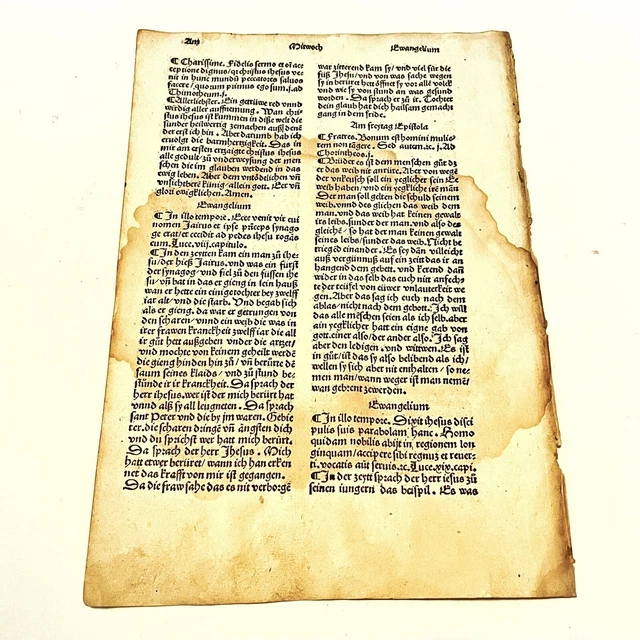 Am Mitwoch Ewangelium
¶ Charissime. Fidelis sermo et oī acceptione
ceptione dignus/ qꝛ christus ihesus ve
nit in hunc mundū peccatores saluos
facere/ quorum primus ego sum.j.ad
Thimotheum.j.
¶ Allerliebster. Ein getrüwe red vnnd
wirdig aller auffnemung. Wan chri
stus ihesus ist kummen in diße welt die
sunder heilwertig zemachen auß denē
der erst ich bin. Aber darumb hab ich
eruolgt die barmhertzigkeit. Das in
mir am ersten erzaigte christus ihesus
alle gedult/ zů vnderweysung der men
schen die im glauben werdend in das
ewig leben. Aber dem vntödlichen vñ
vnsichtberē künig/ allein gott. Eer vñ
glori ewigklichen. Amen.
Ewangelium
¶ In illo tempore. Ecce venit vir cui
nomen Jairus et ipse prīceps synago
ge erat/ et cecidit ad pedes ihesu rogās
eum. Luce.viij.capitulo.
¶ In den zeytten kam ein man zů ihe
su/ der hieß Jairus. vnd was ein fürst
der synagog/ vnd fiel zů den füssen ihe
su/ vñ bat in das er gieng in sein hauß
wan er hette ein einige tochter bey zwelff
iar alt/ vnd die starb. Vnd begab sich
als er gieng. da war er getrungen von
den scharen/ vnnd ein weib die was in
irer frawen kranckheit zwelff iar die all
ir gůt hett außgeben vnder die artzet/
vnd mochte von keinem geheilt werdē
die gieng hinden hin zů/ vñ berürte dē
saum seines klaids/ vnd zů stund be
stünde ir ir kranckheit. Da sprach der
herr ihesus. wer ist der mich berürt hat
vnnd alß sy all leugneten. Da sprach
sant Peter vnd die by jm waren. Gebie
ter. die scharen dringē vñ ängsten dich
vnd du sprichst wer hatt mich berürt.
Da sprach der herr Jhesus. Mich
hatt etwer berüret/ wann ich han erken
net das krafft von mir ist gegangen.
Da die fraw sahe das es nit verborgē
war zitterend kam sy/ vnd viel für die
füß Jhesu/ vnd von was sache wegen
sy in berürt hett öffnet sy vor allē volck
vnd wie sy von stund an was gesund
worden. Da sprach er zů ir. Tochter
dein glaub hat dich hailsam gemacht
gang in dem fride.
Am freytag Epistola
¶ Fratres. Bonum est homini mulie
rem non tāgere. Sed autem.ꝛc.j. Ad
Chorintheos.j.
¶ Brüder es ist dem menschen gůt dz
er das weib nit anrüre. Aber von wegē
der vnkeusch soll ein yegklicher sein Ee
weib haben/ vnd ein yegkliche irē man
Der man soll gelten die schuld seinem
weib. vnnd des glichen das weib dem
man. vnd das weib hat keinen gewalt
irs leibs. sunder der man. vnd also des
gleichē/ so hat der man keinen gewalt
seines leibs/ sunder das weib. Nicht be
triegēd einander. Es sey dañ villeicht
auß vergünnuß auf ein zeit das ir an
hangend dem gebett. vnd kerend dañ
wider in das selb das euch nit anfech
te der teüfel von eüwer vnlauterkeit we
gen. Aber das sag ich euch nach dem
ablas/ nicht nach dem gebott. Ich will
das alle mēschen seien als ich selb. aber
ain yegklicher hatt ein eigne gab von
gott. einer also/ der ander also. Ich sag
aber den ledigen. vnd wittwen. Es ist
in gůt/ ist das sy also belibend als ich/
wellen sy sich aber nit enthalten/ so ne
men man/ wann weger ist man nemē/
wan gebrent zewerden.
Ewangelium
¶ In illo tempore. Dixit ihesus disci
pulis suis parabolam hanc. Homo
quidam nobilis abijt in regionem lon
ginquam/ accipere sibi regnuz et reuer
ti. vocatis aūt seruis.ꝛc. Luce.xix.capi.
¶ In der zeyt sprach der herr iesus zů
seinen iungern das beispil. Es was